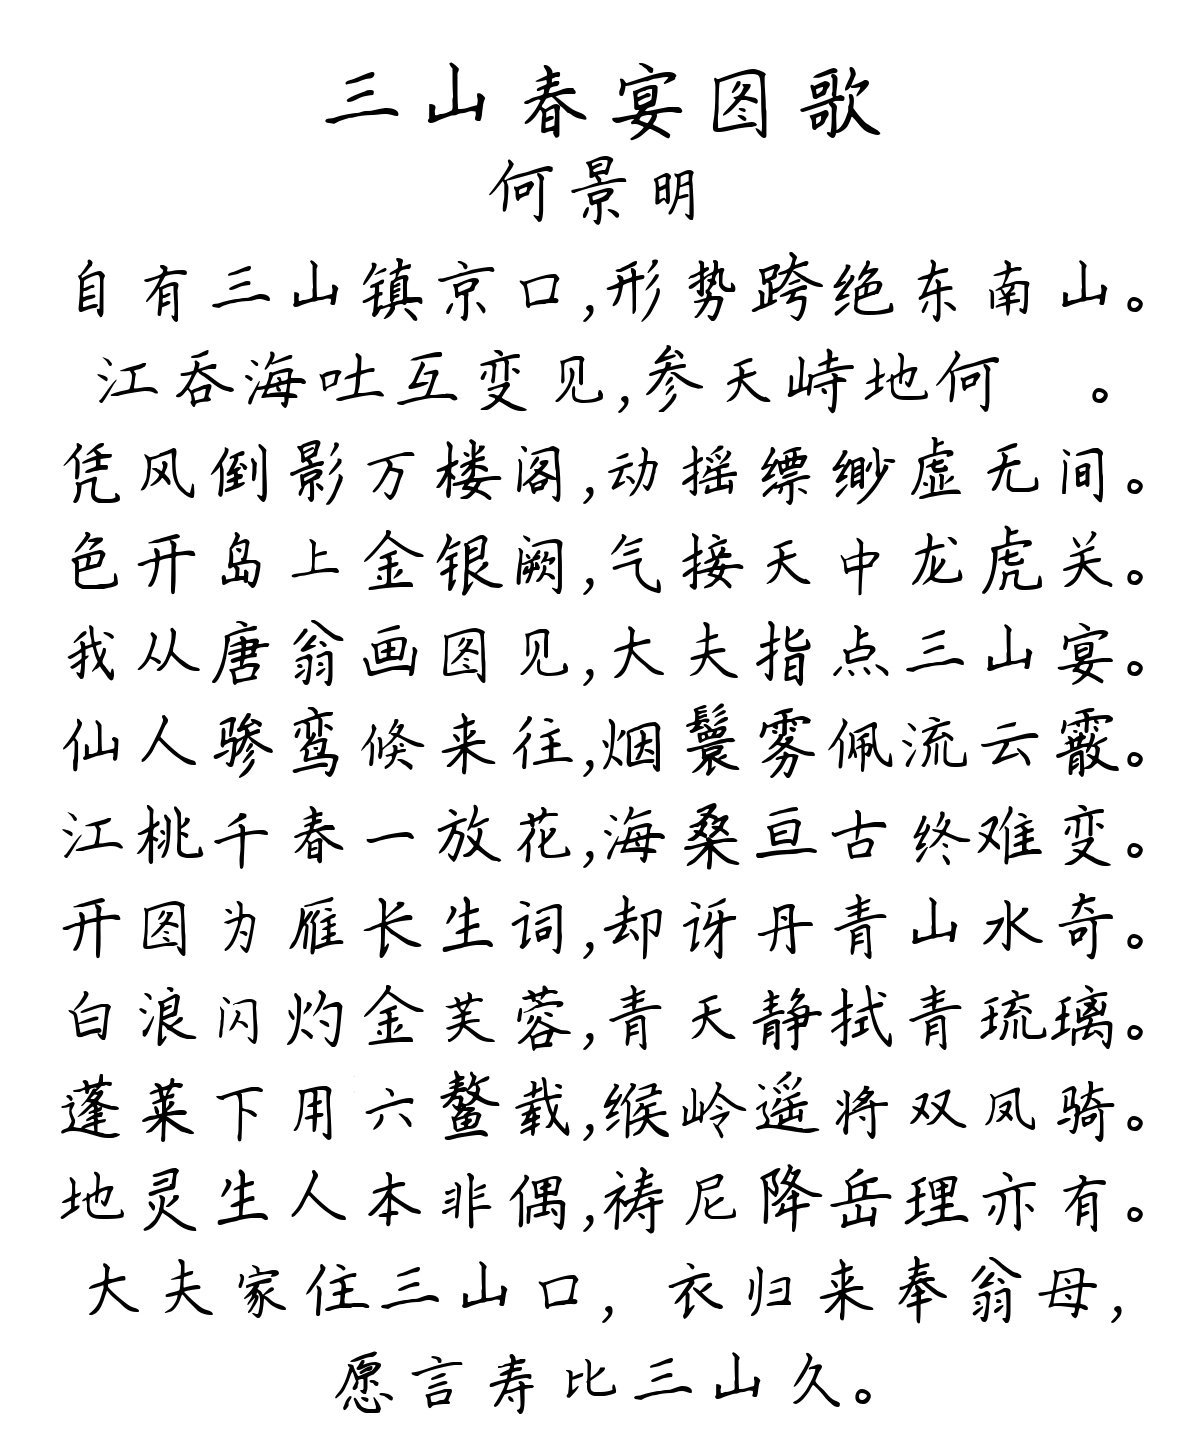 三山春宴图歌
何景明
自有三山镇京口,形势跨绝东南山。
江吞海吐互变见,参天峙地何 。
凭风倒影万楼阁,动摇缥缈虚无间。
色开岛上金银阙,气接天中龙虎关。
我从唐翁画图见,大夫指点三山宴。
仙人骖鸾倏来往,烟鬟雾佩流云霰。
江桃千春一放花,海桑亘古终难变。
开图为雁长生词,却讶丹青山水奇。
白浪闪灼金芙蓉,青天静拭青琉璃。
蓬莱下用六鳌载,缑岭遥将双凤骑。
地灵生人本非偶,祷尼降岳理亦有。
大夫家住三山口,衣归来奉翁母,
愿言寿比三山久。